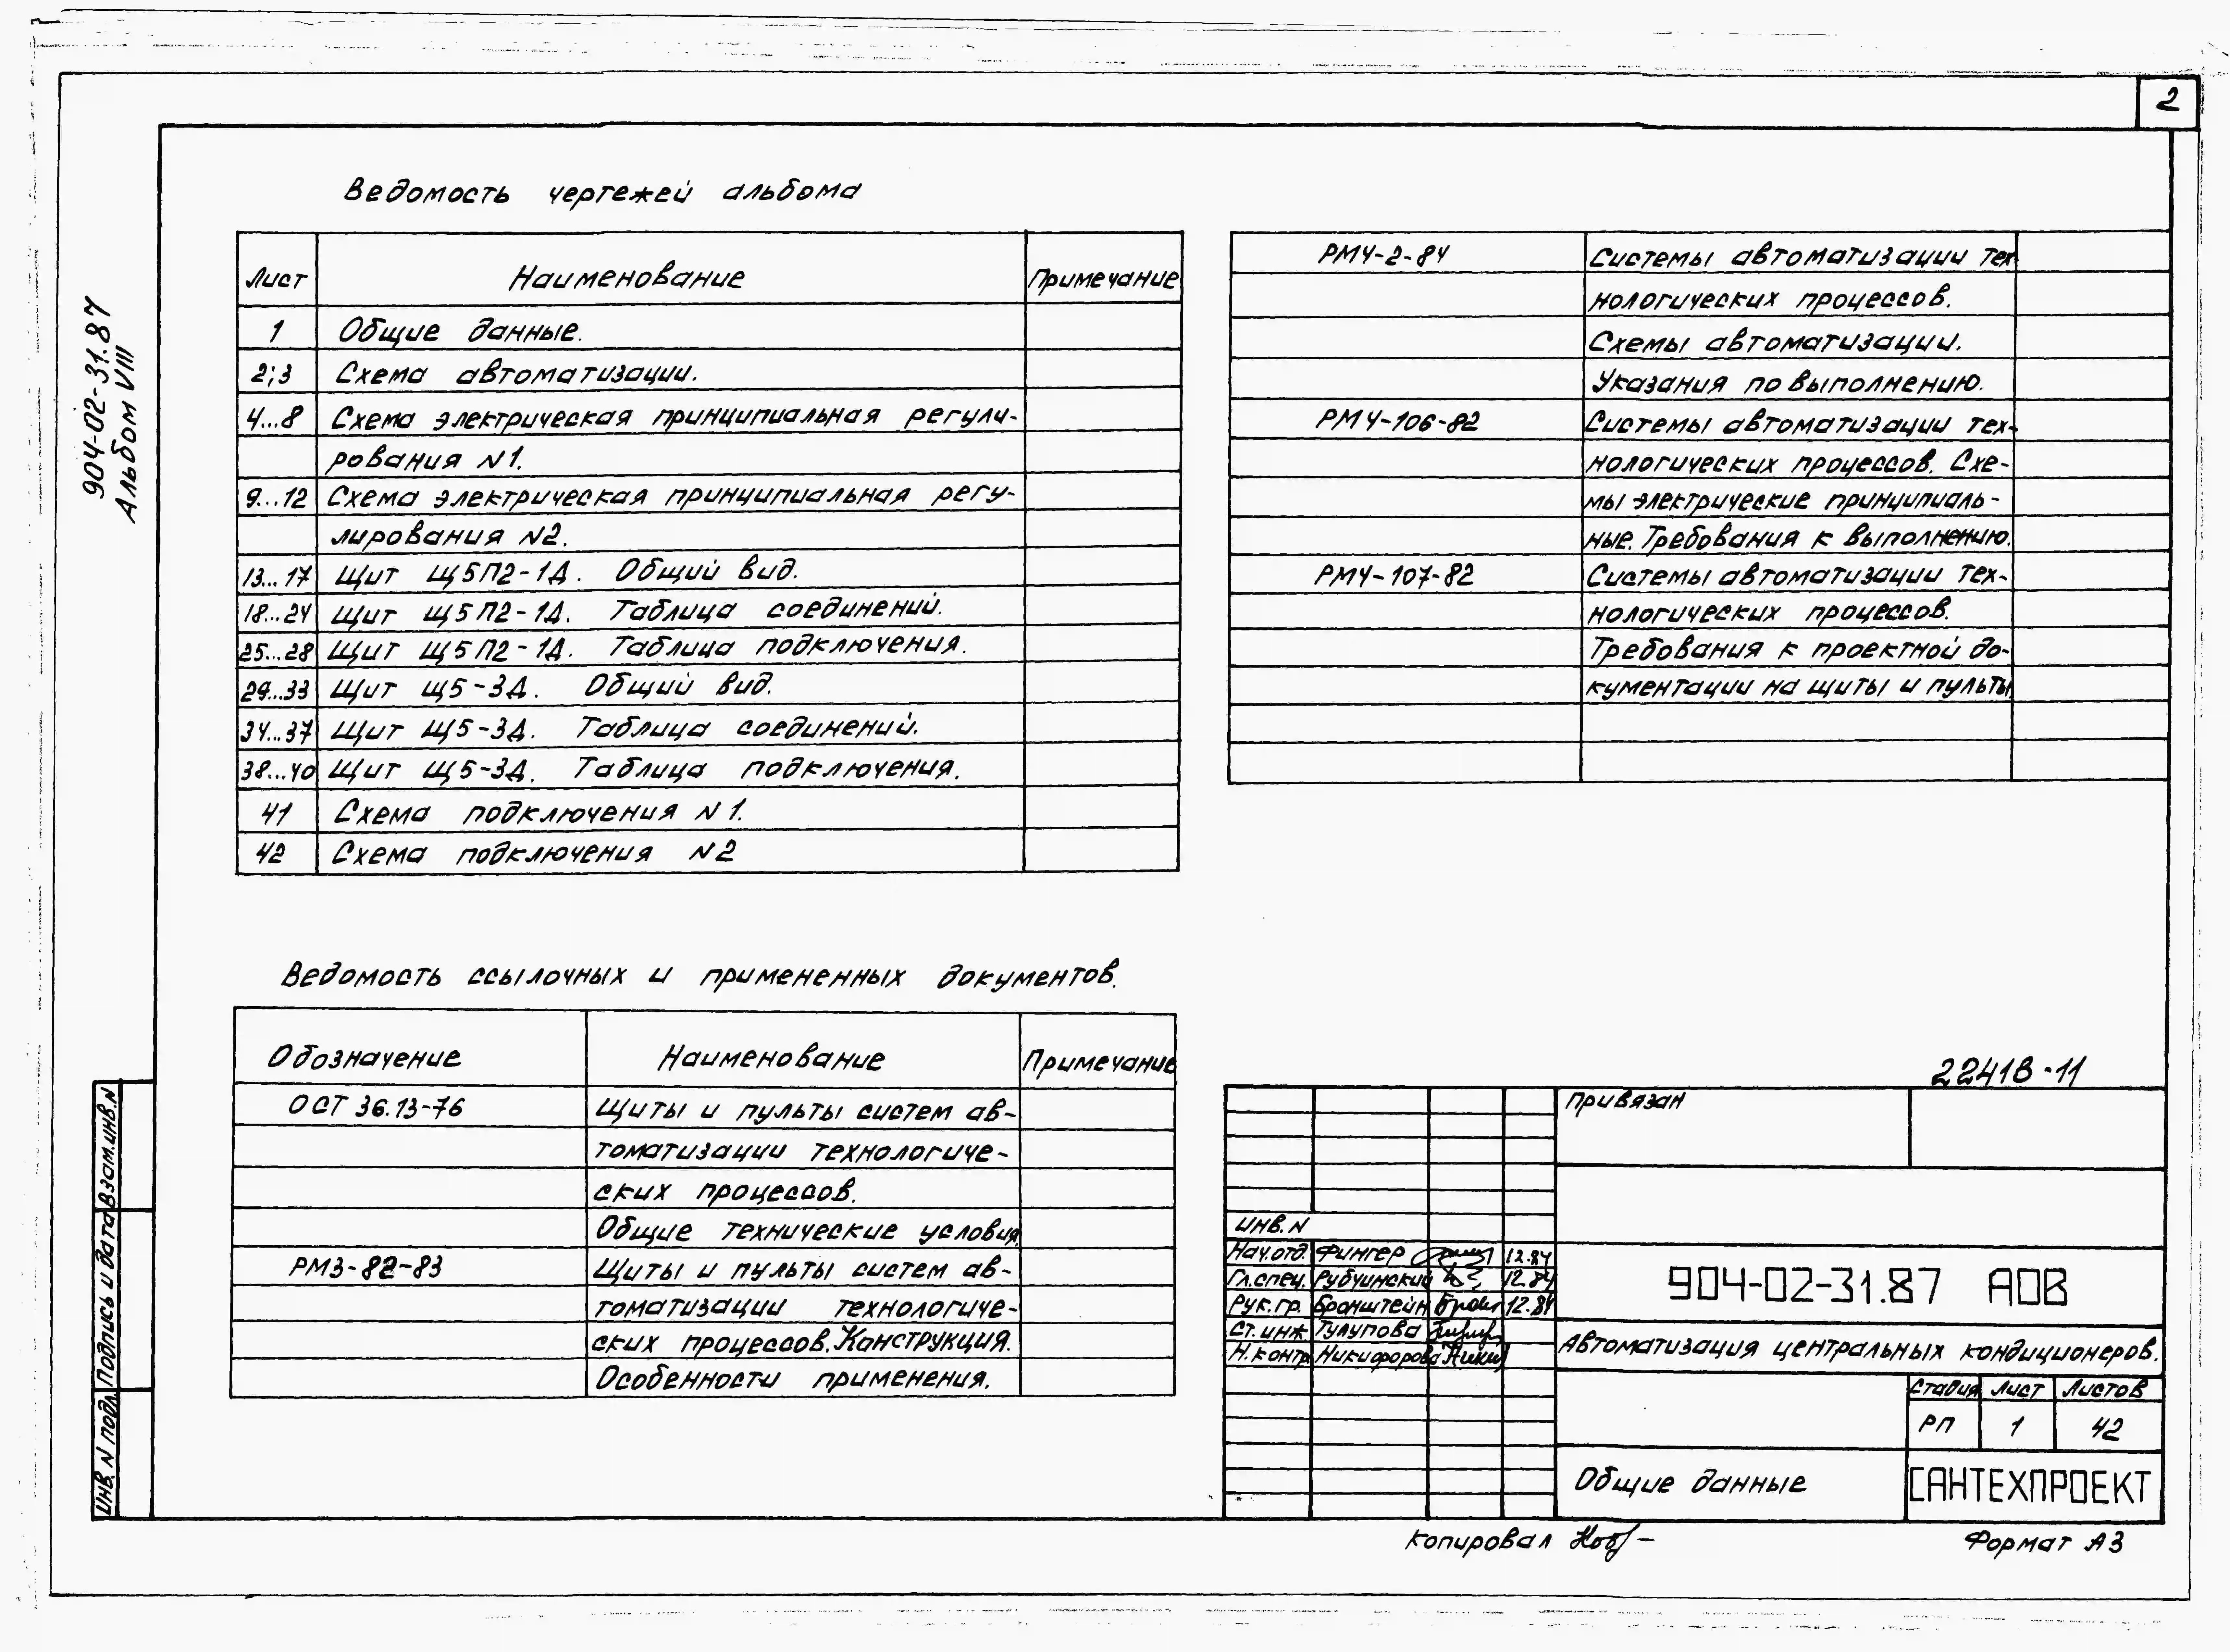 2
904-02-31.87
Альбом VIII
Ведомость чертежей альбома
Лист Наименование Примечание
1 Общие данные.
2;3 Схема автоматизации.
4...8 Схема электрическая принципиальная регули-
рования N1.
9...12 Схема электрическая принципиальная регу-
лирования N2.
13...17 Щит Щ5П2-1Д. Общий вид.
18...24 Щит Щ5П2-1Д. Таблица соединений.
25...28 Щит Щ5П2-1Д. Таблица подключения.
29...33 Щит Щ5-3Д. Общий вид.
34...37 Щит Щ5-3Д. Таблица соединений.
38...40 Щит Щ5-3Д. Таблица подключения.
41 Схема подключения N1.
42 Схема подключения N2
РМ4-2-84 Системы автоматизации тех-
нологических процессов.
Схемы автоматизации.
Указания по выполнению.
РМ4-106-82 Системы автоматизации тех-
нологических процессов. Схе-
мы электрические принципиаль-
ные. Требования к выполнению.
РМ4-107-82 Системы автоматизации тех-
нологических процессов.
Требования к проектной до-
кументации на щиты и пульты
Ведомость ссылочных и примененных документов.
Обозначение Наименование Примечание
ОСТ 36.13-76 Щиты и пульты систем ав-
томатизации технологиче-
ских процессов.
Общие технические условия.
РМ3-82-83 Щиты и пульты систем ав-
томатизации технологиче-
ских процессов. Конструкция.
Особенности применения.
22418-11
Привязан
Инв. N
Нач.отд. Фингер 12.84
Гл.спец. Рубчинский 12.84
Рук.гр. Бронштейн 12.84
Ст.инж Тулупова
Н.контр. Никифорова
904-02-31.87 АОВ
Автоматизация центральных кондиционеров.
Стадия Лист Листов
РП 1 42
Общие данные
САНТЕХПРОЕКТ
Инв. N подл. Подпись и дата Взам.инв.N
Копировал
Формат А3